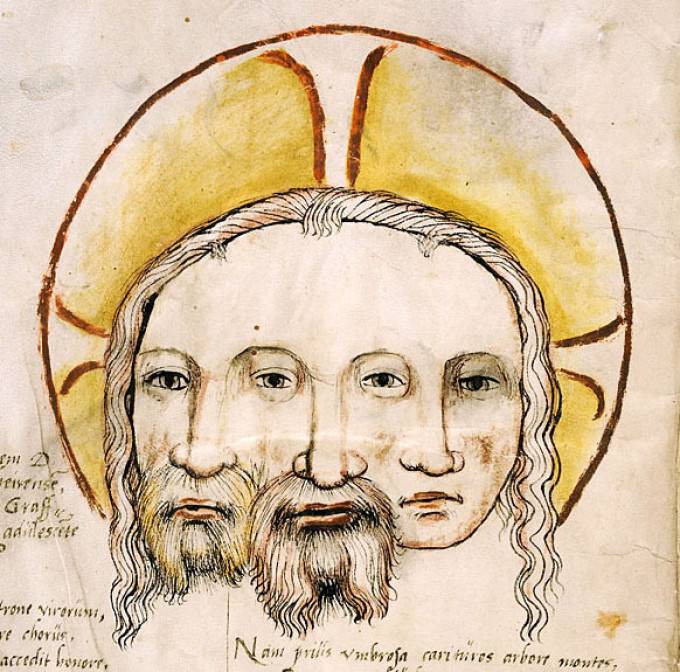 em D
peirense,
Graff
adidescēte
trone virorum,
re chorus,
accedit honore,
Nam prilis vmbrosa carituros arbore montes,